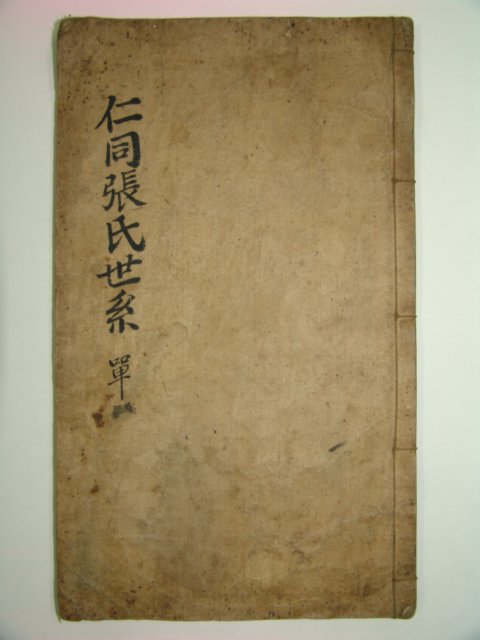 仁同張氏世系 單